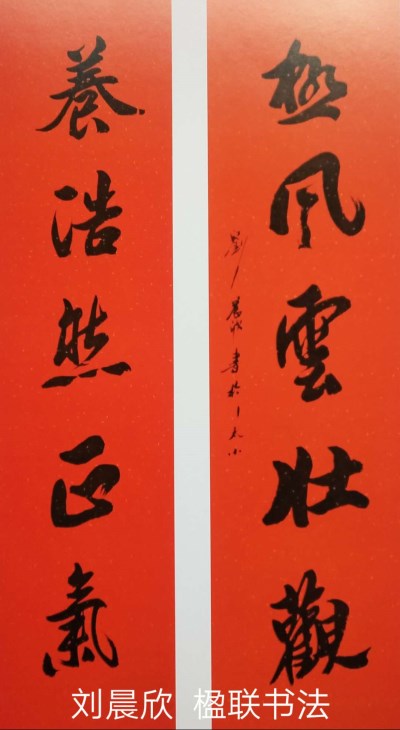 極風雲壯觀
劉晨欣書於
養浩然正氣
刘晨欣 楹联书法